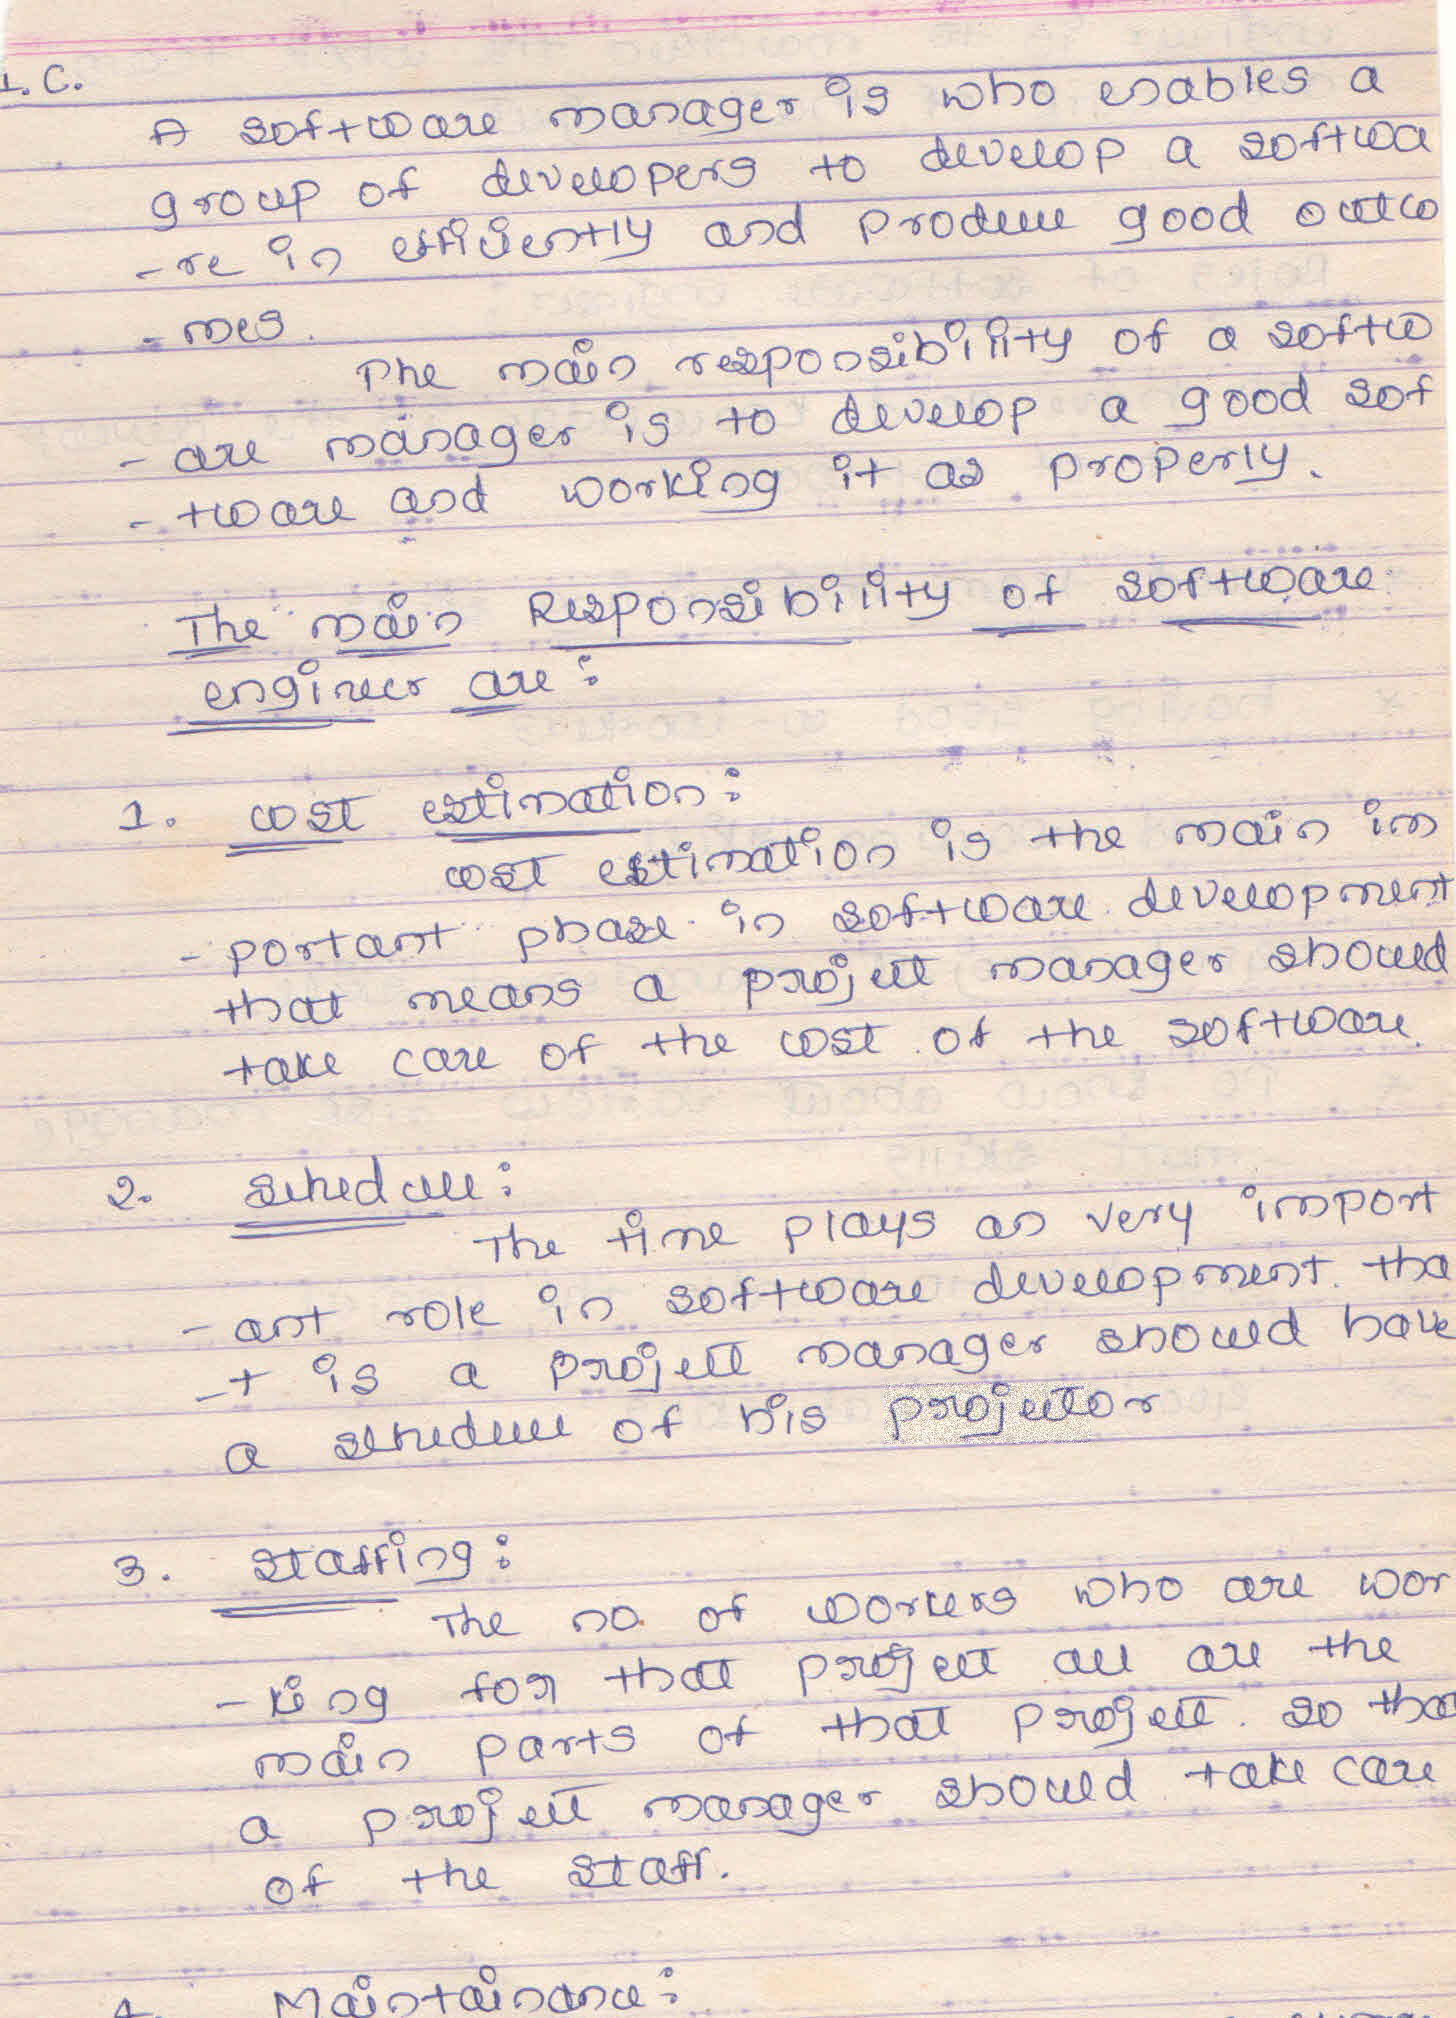 1.C.
A software manager is who enables a
group of developers to develop a softwa
-re in efficiently and produce good outco
-mes.
The main responsibility of a softw
-are manager is to develop a good sof
-tware and working it as properly.
The main Responsibility of software
engineer are:
1. cost estimation:
cost estimation is the main im
-portant phase in software development
that means a project manager should
take care of the cost of the software.
2. schedule:
The time plays an very import
-ant role in software development. tha
-t is a project manager should have
a schedule of his projector
3. staffing:
The no. of workers who are wor
-king for that project all are the
main parts of that project. so tha
a project manager should take care
of the staff.
4. Maintainance: